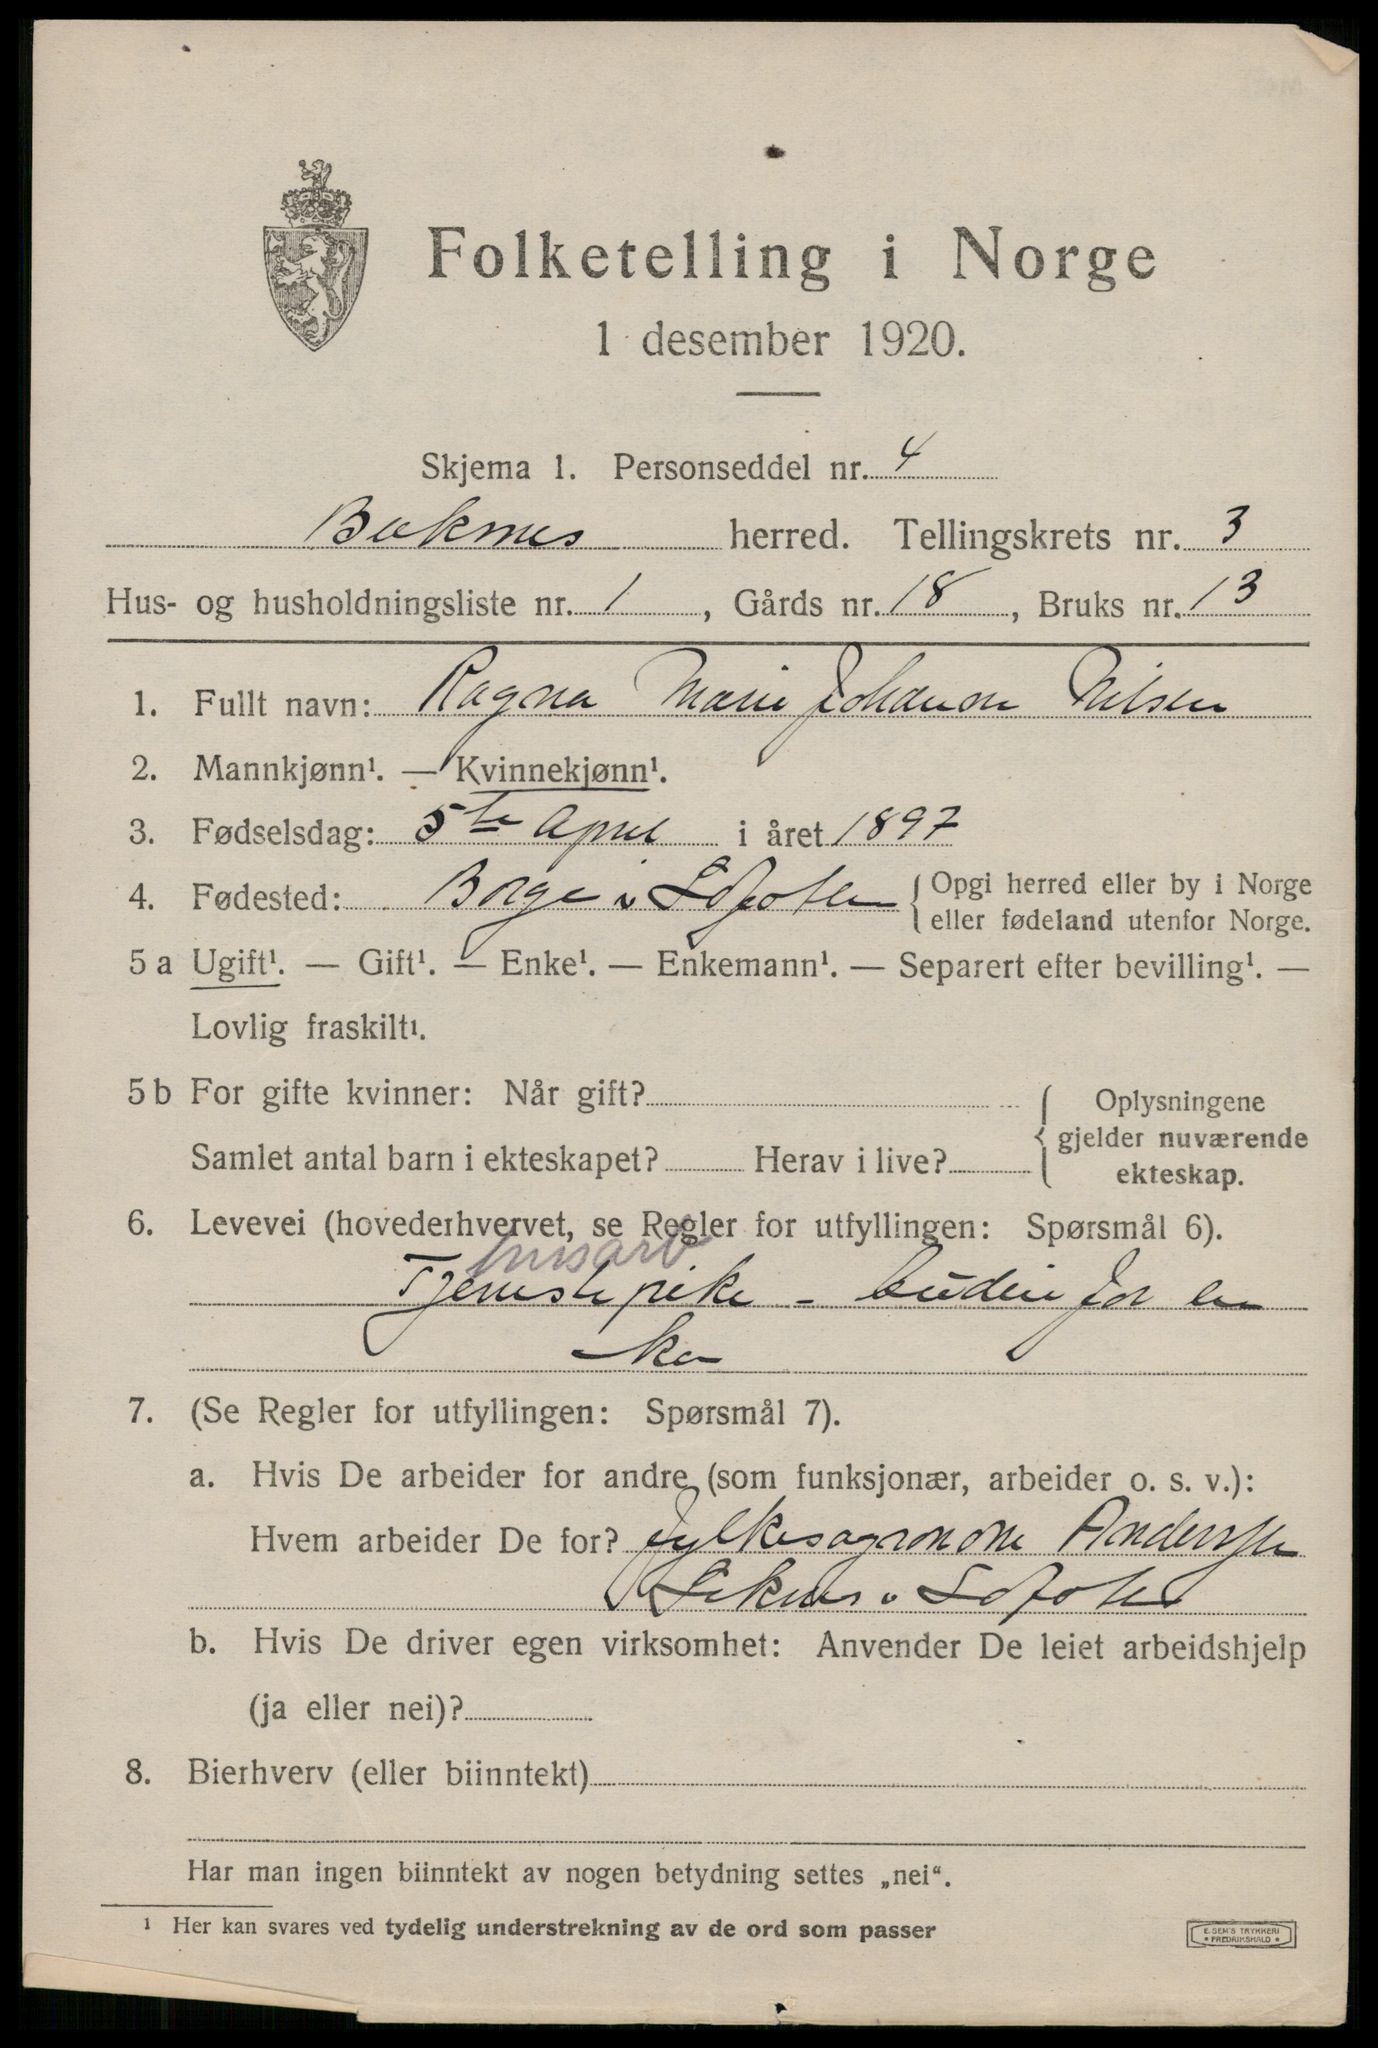 Folketelling i Norge
1 desember 1920.
Skjema 1. Personseddel nr. 4
Buksnes herred. Tellingskrets nr. 3
Hus- og husholdningsliste nr. 1, Gårds nr. 18, Bruks nr. 13
1. Fullt navn: Ragna Marie Johanna Nilsen
2. Mannkjønn¹. — Kvinnekjønn¹.
3. Fødselsdag: 5te April i året 1897
4. Fødested: Borge i Lofoten { Opgi herred eller by i Norge
eller fødeland utenfor Norge.
5 a Ugift¹. — Gift¹. — Enke¹. — Enkemann¹. — Separert efter bevilling¹. —
Lovlig fraskilt¹.
5 b For gifte kvinner: Når gift? { Oplysningene
gjelder nuværende
ekteskap.
Samlet antal barn i ekteskapet? Herav i live?
6. Levevei (hovederhvervet, se Regler for utfyllingen: Spørsmål 6).
husarb
Tjenestepike - budeie for en
ku
7. (Se Regler for utfyllingen: Spørsmål 7).
a. Hvis De arbeider for andre (som funksjonær, arbeider o. s. v.):
Hvem arbeider De for? Fylkesagronom Anderssen
i Lofoten
b. Hvis De driver egen virksomhet: Anvender De leiet arbeidshjelp
(ja eller nei)?
8. Bierhverv (eller biinntekt)
Har man ingen biinntekt av nogen betydning settes „nei“.
¹ Her kan svares ved tydelig understrekning av de ord som passer
E. SEM'S TRYKKERI
FREDRIKSHALD